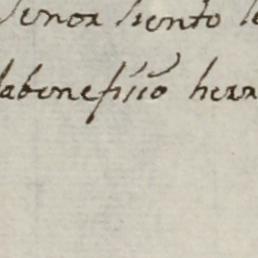 Senor siento le
labenefiçio herr